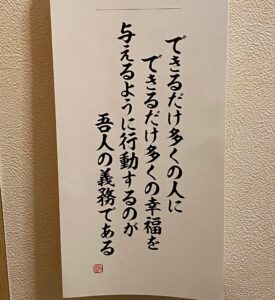 できるだけ多くの人に
できるだけ多くの幸福を
与えるように行動するのが
吾人の義務である